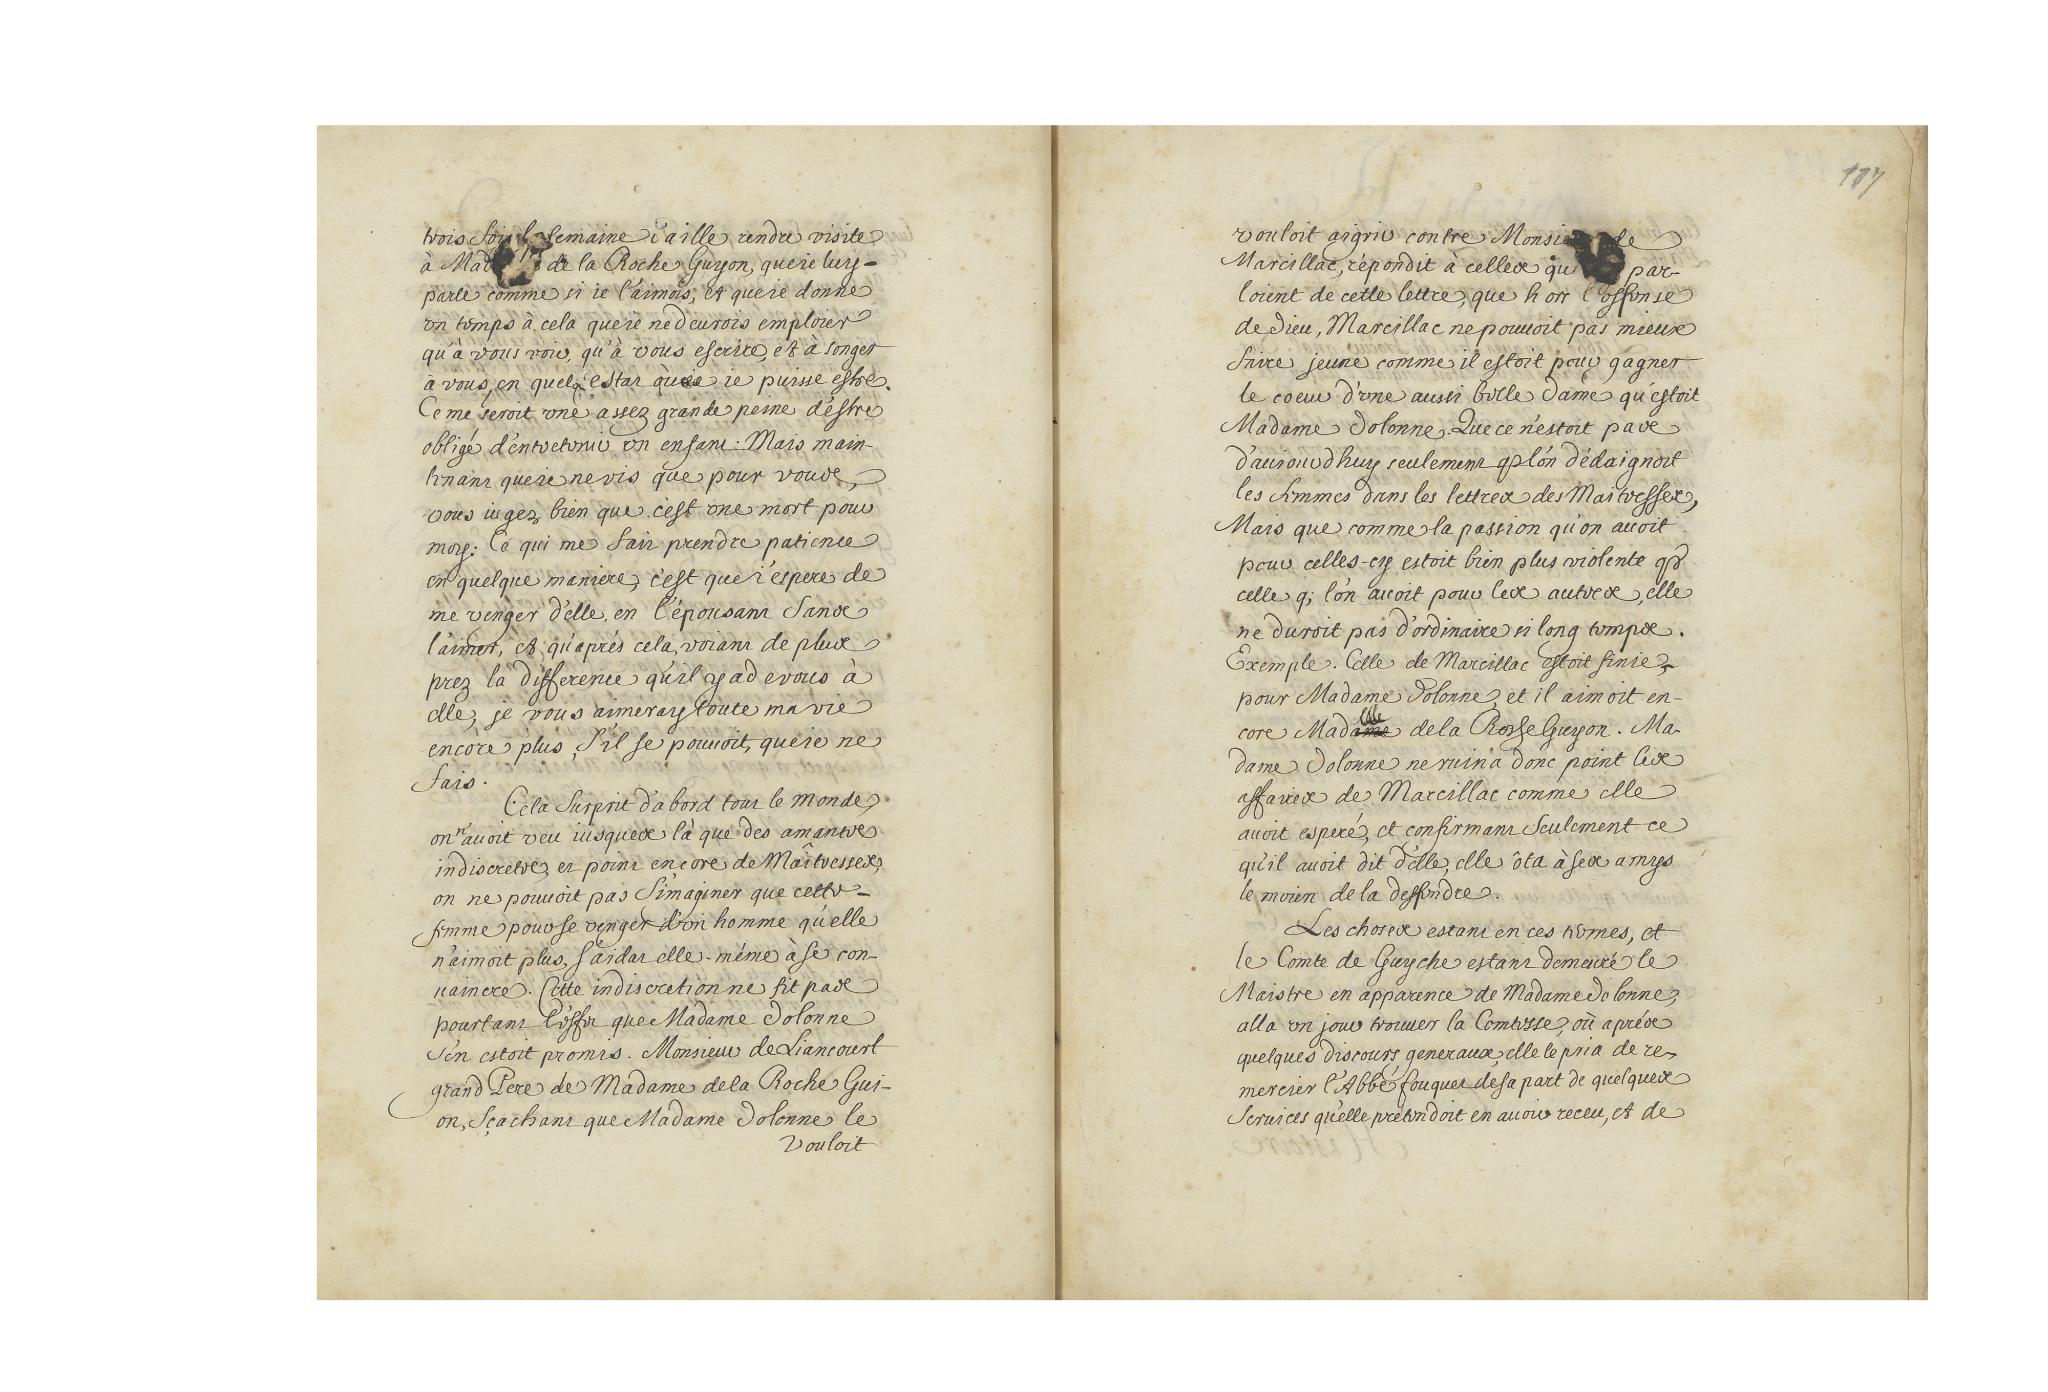 trois fois la semaine i'aille rendre visite
à de la Roche Guyon, que ie luy-
parle comme si ie l'aimois, et que ie donne
vn temps à cela que ie ne deurois emploier
qu'à vous voir, qu'à vous escrire, et à songer
à vous, en quelq; estat ie puisse estre.
Ce me seroit vne assez grande peine d'estre
obligé d'entretenir vn enfant: Mais main-
tenant que ie ne vis que pour vous,
vous iugez bien que c'est vne mort pour
moy: Ce qui me fait prendre patience
en quelque maniere, c'est que i'espere de
me venger d'elle, en l'épousant sans
l'aimer, et qu'aprés cela, voiant de plus
prez la difference qu'il y a de vous à
elle, je vous aimeray toute ma vie
encore plus, s'il se pouuoit, que ie ne
fais.
Cela surprit d'abord tout le monde,
on n'auoit veu iusques là que des amants
indiscrets, et point encore de Maîtresses,
on ne pouuoit pas s'imaginer que cette-
femme pour se venger d'vn homme qu'elle
n'aimoit plus, s'aidat elle-méme à se con-
uaincre. Cette indiscretion ne fit pas
pourtant l'effet que Madame Dolonne
s'en estoit promis. Monsieur de Liancourt
grand Pere de Madame de la Roche Gui-
on, sçachant que Madame Dolonne le
vouloit
107
vouloit aigrir contre de
Marcillac, répondit à celles par-
loient de cette lettre, que hors l'offense
de Dieu, Marcillac ne pouuoit pas mieux
faire jeune comme il estoit pour gagner
le coeur d'vne aussi belle Dame qu'estoit
Madame Dolonne. Que ce n'estoit pas
d'auiourdhuy seulement que l'on dédaignoit
les femmes dans les lettres des Maitresses,
Mais que comme la passion qu'on auoit
pour celles-cy estoit bien plus violente que
celle q; l'on auoit pour les autres, elle
ne duroit pas d'ordinaire si long temps.
Exemple. Celle de Marcillac estoit finie,
pour Madame Dolonne, et il aimoit en-
core Madame elle de la Rosse Guyon. Ma-
dame Dolonne ne ruina donc point les
affaires de Marcillac comme elle
auoit esperé, et confirmant seulement ce
qu'il auoit dit d'elle, elle ôta à ses amys
le moien de la deffendre.
Les choses estant en ces termes, et
le Comte de Guyche estant demeuré le
Maistre en apparence de Madame Dolonne,
alla vn jour trouuer la Comtesse, où aprés
quelques discours generaux, elle le pria de re-
mercier l'Abbé fouquet de sa part de quelques
seruices qu'elle pretendoit en auoir receu, et de